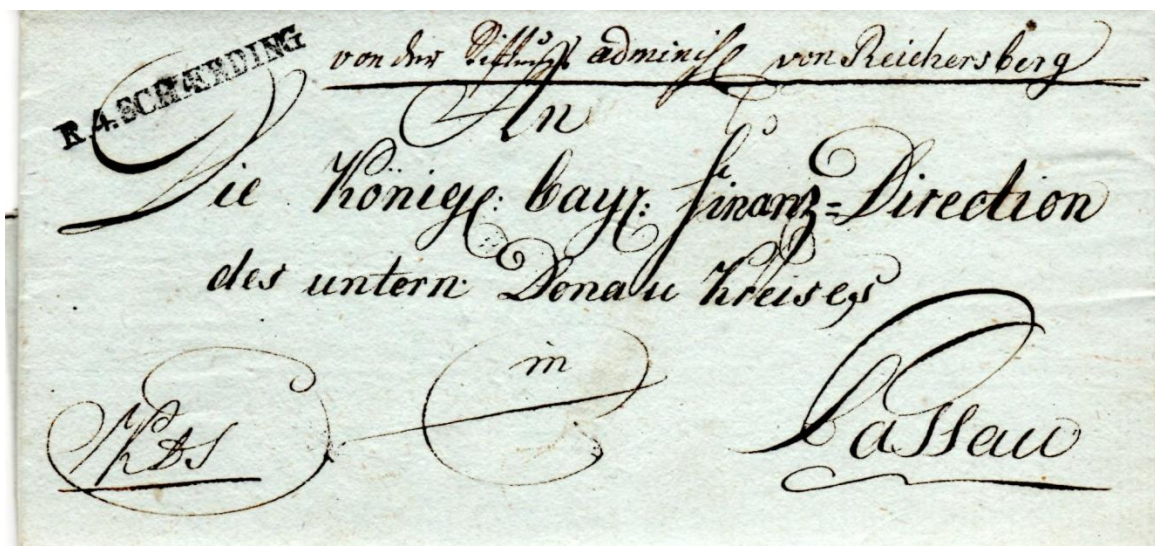 R.4.SCHÆRDING
von der administ von Reichersberg
An
Die Königl: bayr: Finanz=Direction
des untern Donau Kreises
in
Passau